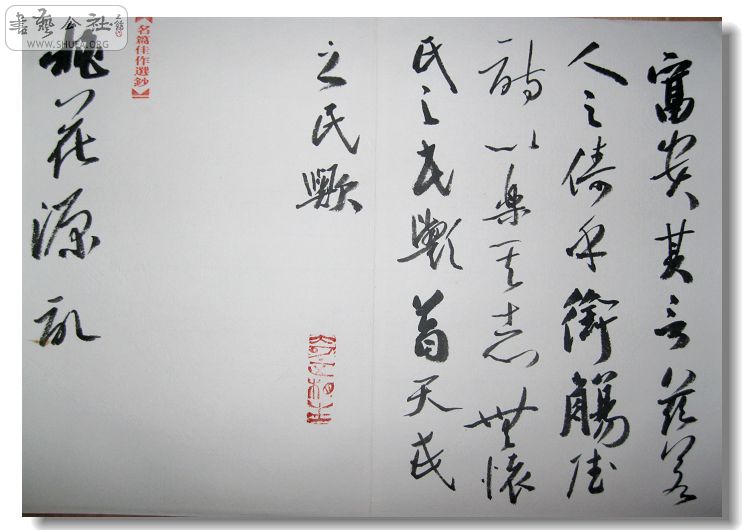 富貴其言茲若
人之儔乎銜觴賦
詩以樂其志無懷
氏之民歟葛天氏
之民歟
【名篇佳作選鈔】
桃花源記
書藝公社
WWW.SHUFA.ORG